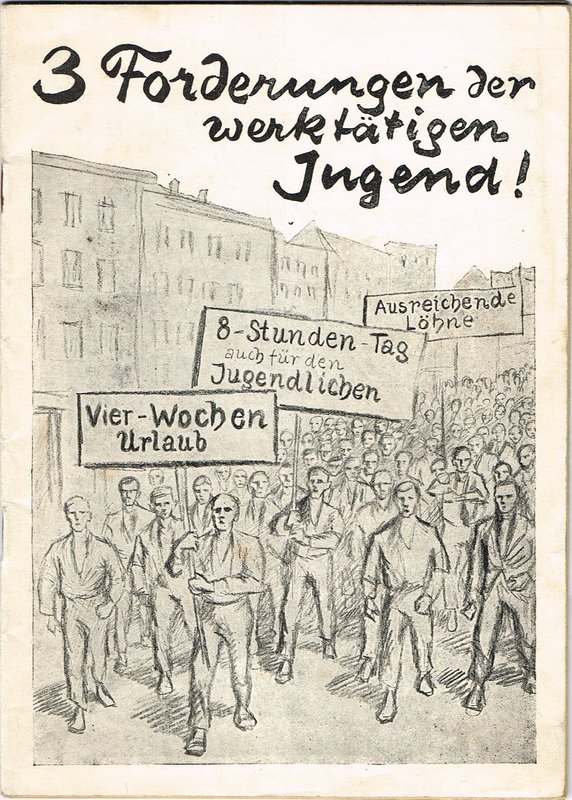 3 Forderungen der
werktätigen
Jugend!
Ausreichende
Löhne
8-Stunden-Tag
auch für den
Jugendlichen
Vier-Wochen
Urlaub